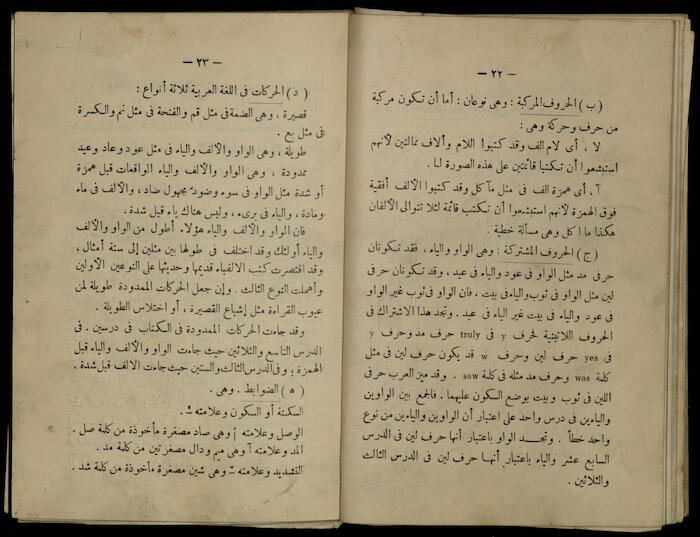 — ٢٢ —
(ب) الحروف المركبة : وهى نوعان : أما أن تكون مركبة
من حرف وحركة وهى :
لا ، أى لام الف وقد كتبوا اللام وألاف بمالتين لأنهم
استبشعوا أن تكتبا قائمتين على هذه الصورة لـا .
آ ، أى همزة الف فى مثل مآكل وقد كتبوا الألف أفقية
فوق الهمزة لأنهم استبشعوا أن تكتب قائمة لئلا تتوالى الألفان
هكذا ماا كل وهى مسألة خطية .
(ج) الحروف المشتركة : وهى الواو والياء ، فقد تكونان
حرفى مد مثل الواو فى عود والياء فى عيد ، وقد تكونان حرفى
لين مثل الواو فى ثوب والياء فى بيت ، فان الواو فى ثوب غير الواو
فى عود والياء فى بيت غير الياء فى عيد . وتجد هذا الاشتراك فى
الحروف اللاتينية فحرف y فى truly حرف مد وحرف y
فى yes حرف لين وحرف w قد يكون حرف لين فى مثل
كلمة was وحرف مد مثله فى كلمة saw . وقد ميز العرب حرفى
اللين فى ثوب وبيت بوضع السكون عليهما . فالجمع بين الواوين
والياءين فى درس واحد على اعتبار أن الواوين والياءين من نوع
واحد خطأ . وتجد الواو باعتبار أنها حرف لين فى الدرس
السابع عشر والياء باعتبار أنها حرف لين فى الدرس الثالث
والثلاثين .
— ٢٣ —
(د) الحركات فى اللغة العربية ثلاثة أنواع :
قصيرة ، وهى الضمة فى مثل قم والفتحة فى مثل نم والكسرة
فى مثل بع .
طويلة ، وهى الواو والألف والياء فى مثل عود وعاد وعيد
ممدودة ، وهى الواو والألف والياء الواقعات قبل همزة
أو شدة مثل الواو فى سوء وضودّ مجهول ضاد ، والألف فى ماء
ومادة ، والياء فى برىء ، وليس هناك ياء قبل شدة .
فان الواو والألف والياء هؤلاء أطول من الواو والألف
والياء أولئك وقد اختلف فى طولها بين مثلين إلى ستة أمثال ،
وقد اقتصرت كتب الالفباء قديمها وحديثها على النوعين الأولين
وأهملت النوع الثالث . وإن جعل الحركات الممدودة طويلة لمن
عيوب القراءة مثل إشباع القصيرة ، أو اختلاس الطويلة .
وقد جاءت الحركات الممدودة فى الكتاب فى درسين . فى
الدرس التاسع والثلاثين حيث جاءت الواو والألف والياء قبل
الهمزة ؛ وفى الدرس الثالث والستين حيث جاءت الالف قبل شدة .
(ه) الضوابط . وهى .
السكنة أو السكون وعلامته ـْ .
الوصل وعلامته ٱ وهى صاد مصغرة مأخوذة من كلمة صل .
المد وعلامته آ وهى ميم ودال مصغرتين من كلمة مد .
التشديد وعلامته ـّ وهى شين مصغرة مأخوذة من كلمة شد .